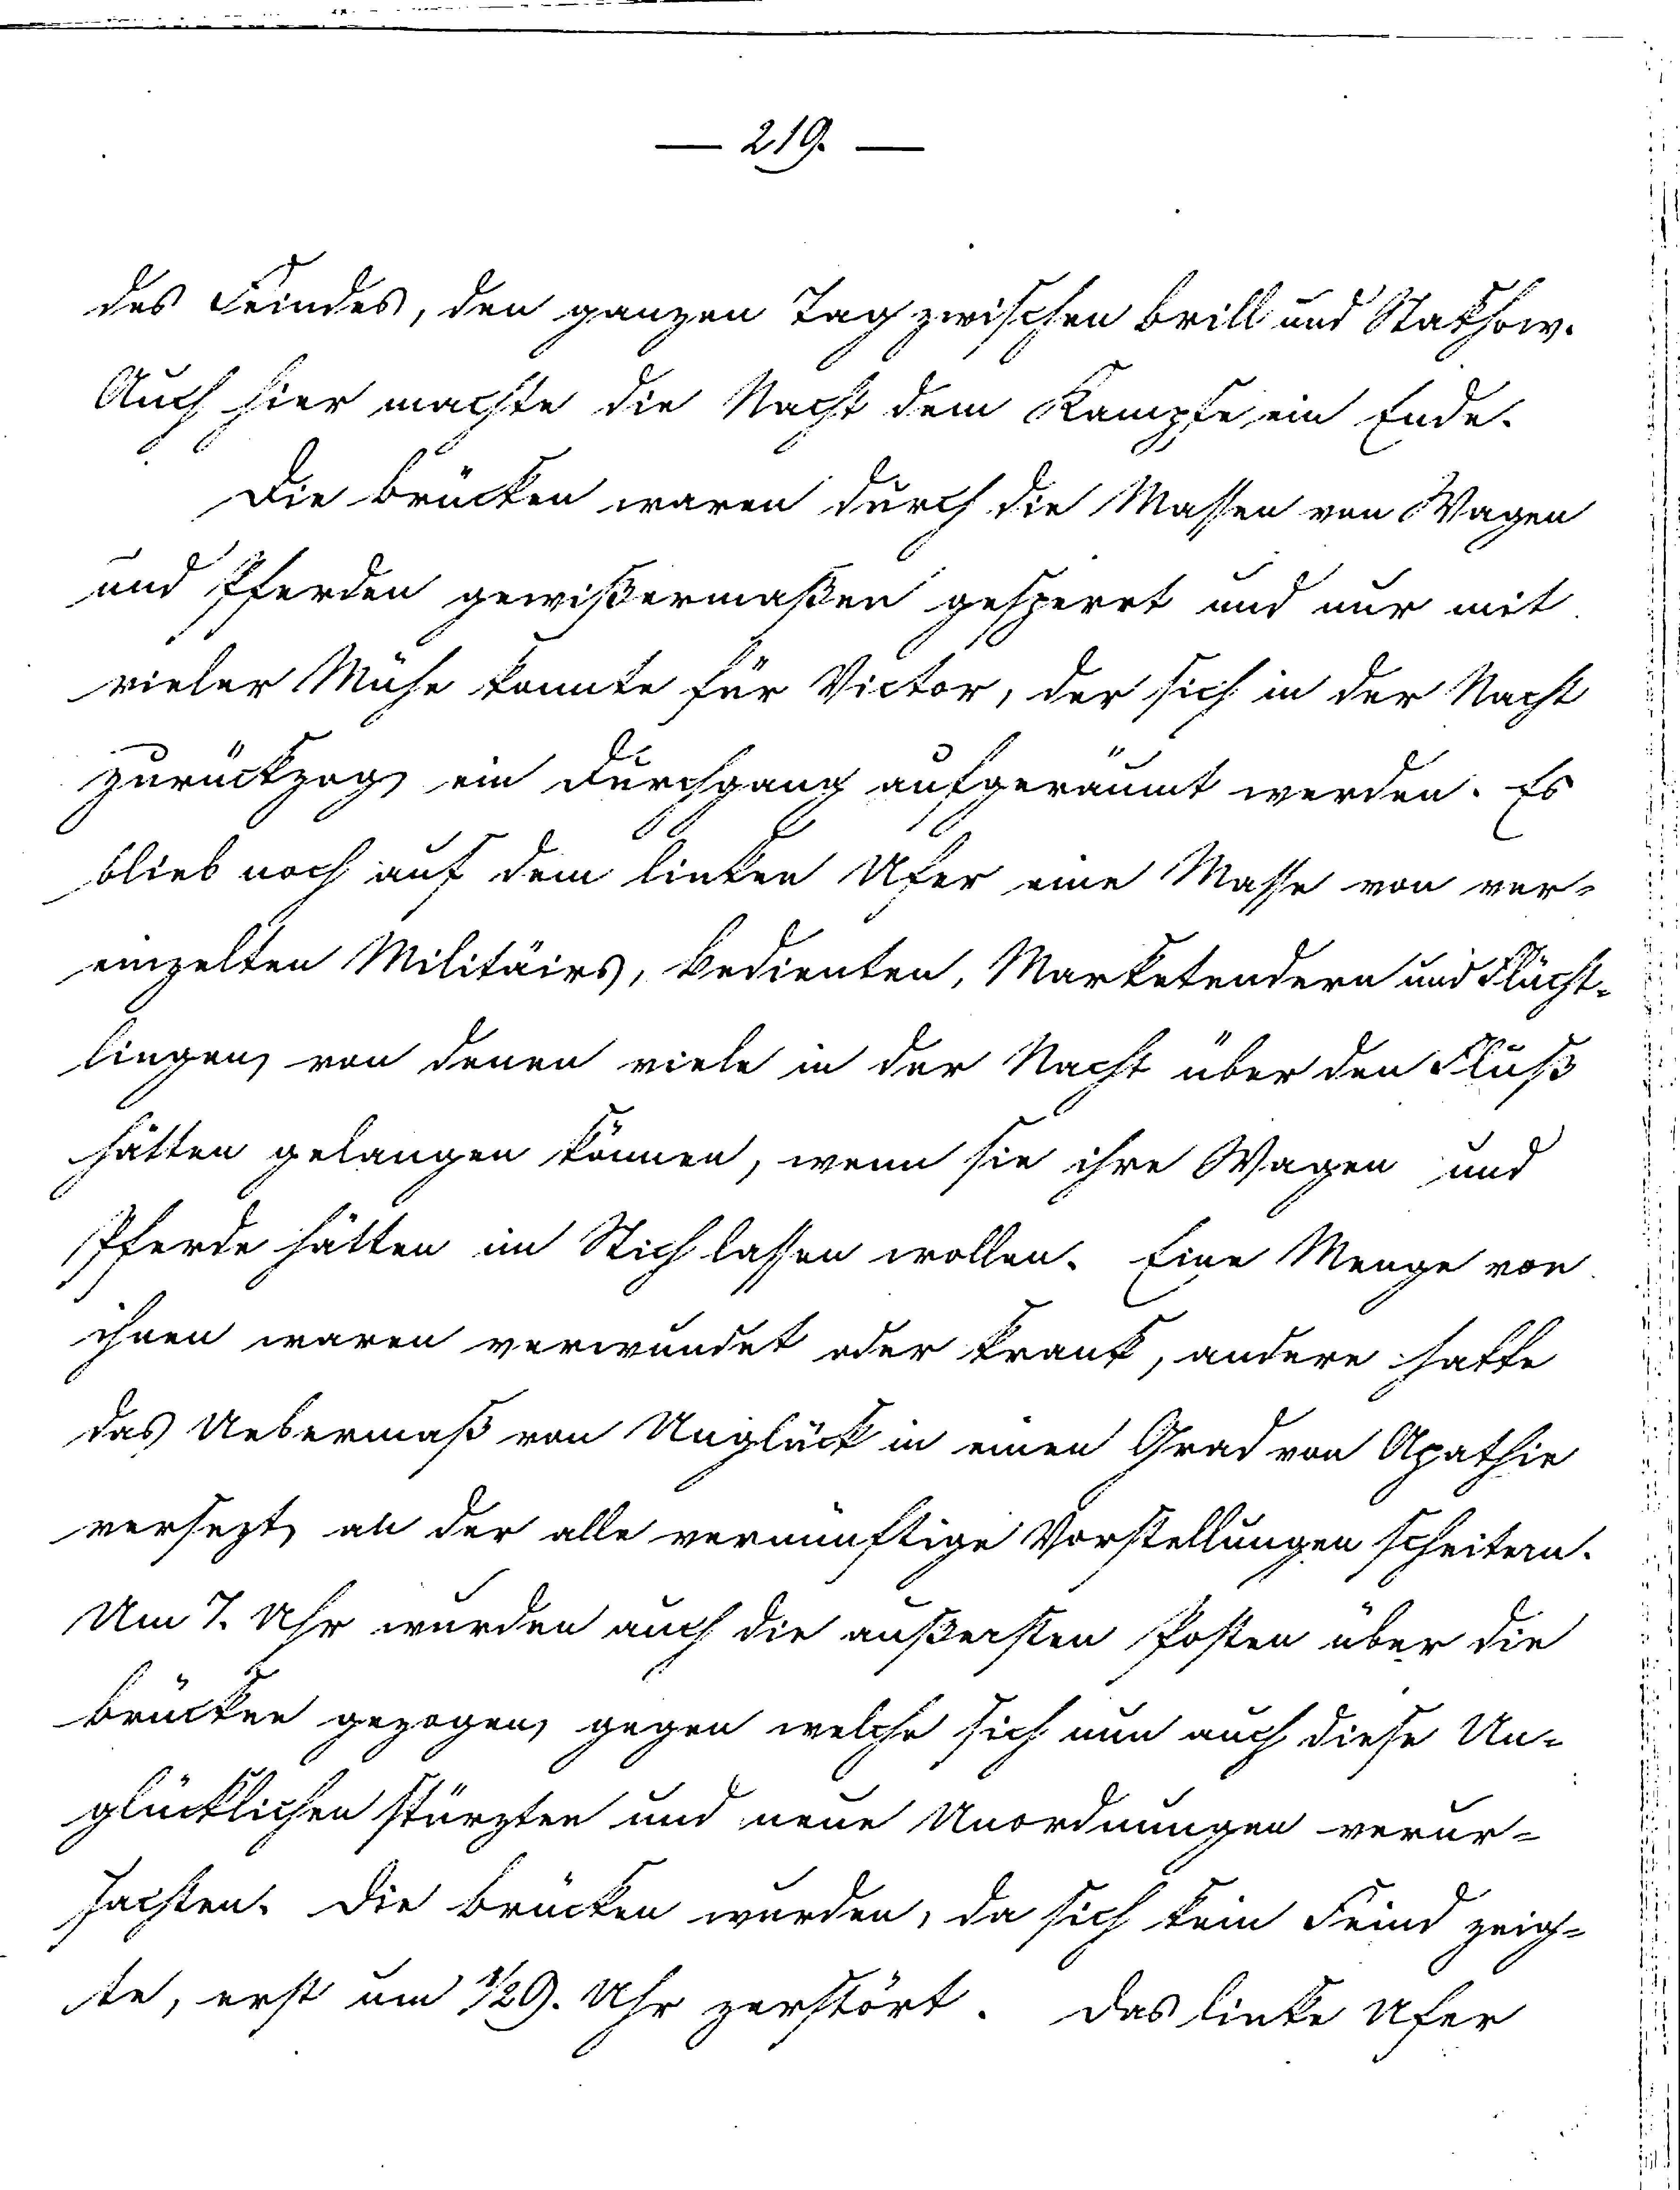 — 219. —
des Feindes, den ganzen Tag zwischen Brill und Stakhow.
Auch hier machte die Nacht dem Kampfe ein Ende.
Die Brücken waren durch die Massen von Wagen
und Pferden gewißermaßen gesperrt und nur mit
vieler Mühe konnte für Victor, der sich in der Nacht
zurückzog, ein Durchgang aufgeräumt werden. Es
blieb noch auf dem linken Ufer eine Masse von ver-
einzelten Militäirs, Bedienten, Marketendern und Flücht-
lingen, von denen viele in der Nacht über den Fluß
hätten gelangen können, wenn sie ihre Wagen und
Pferde hätten im Stich lassen wollen. Eine Menge von
ihnen waren verwundet oder krank, andere hatte
das Uebermaß von Unglück in einen Grad von Apathie
versezt, an der alle vernünftige Vorstellungen scheitern.
Um 7. Uhr wurden auch die außersten Posten über die
Brücken gezogen, gegen welche sich nun auch diese Un-
glücklichen stürzten und neue Unordnungen verur-
sachten. Die Brücken wurden, da sich kein Feind zeig-
te, erst um 1/29. Uhr zerstört. Das linke Ufer